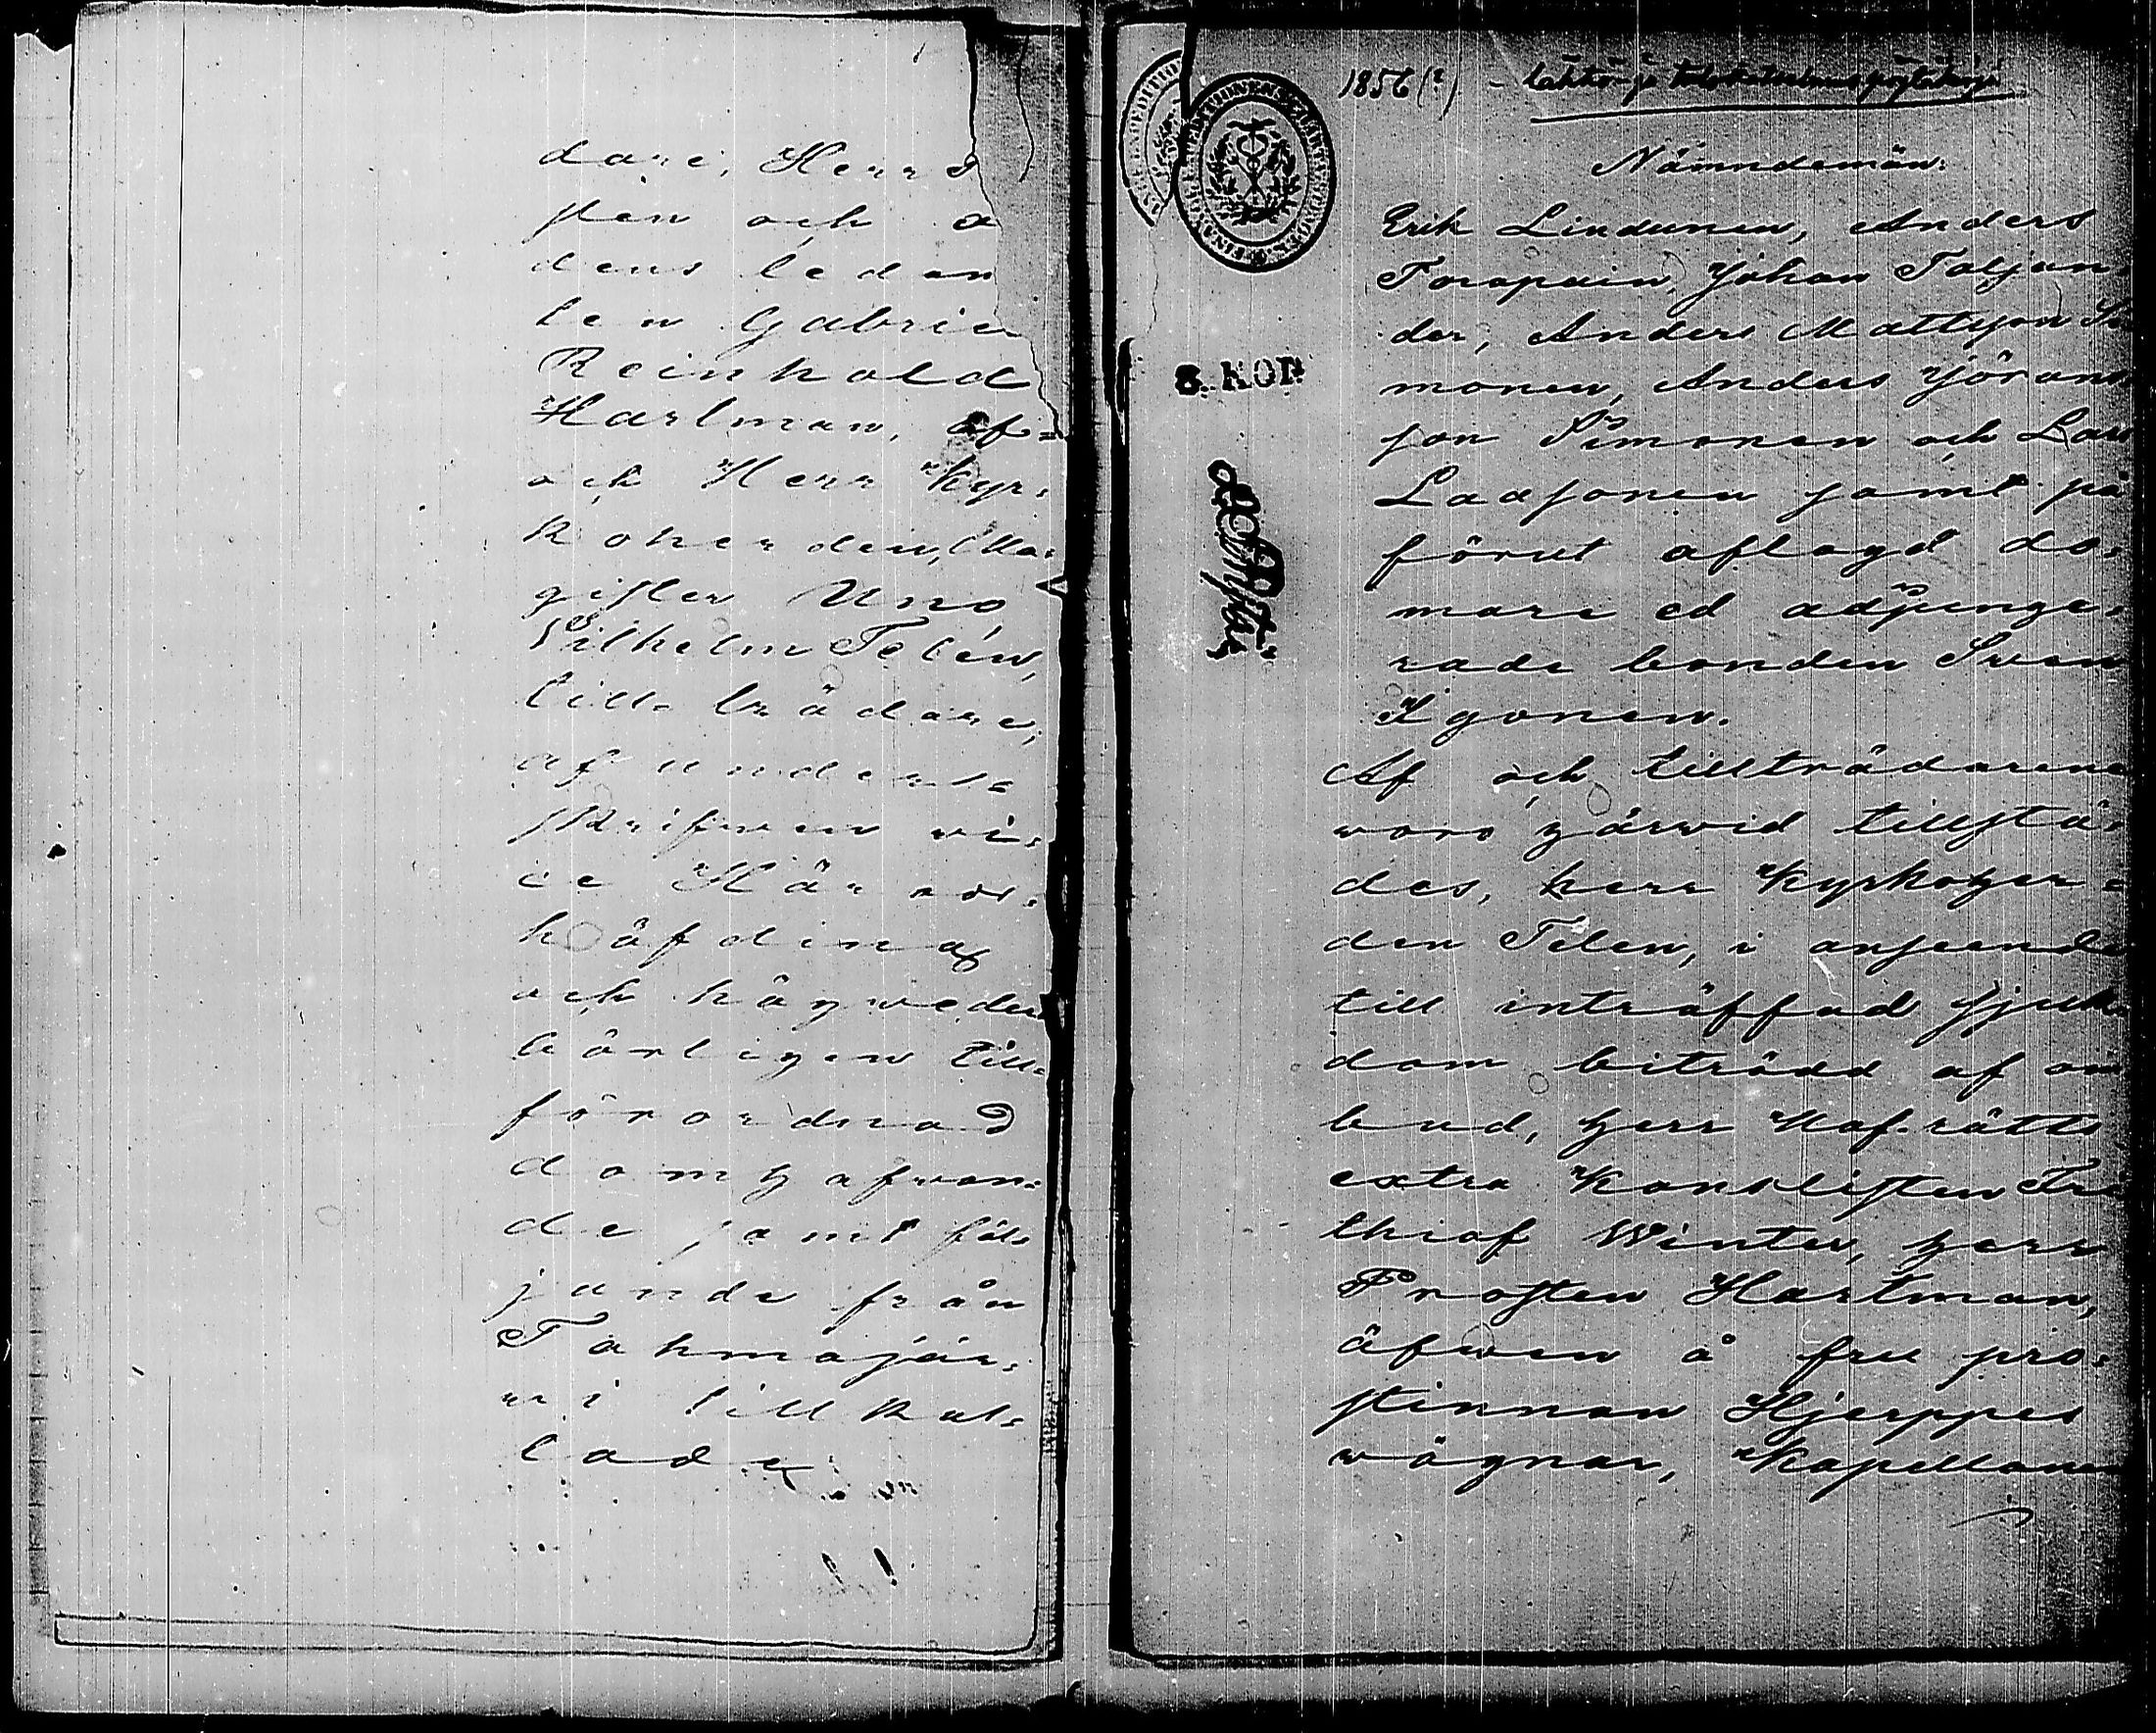 dare, Herr
sten och a
dens ledan
ten Gabrie
Reinhold
Hartman, af=
och Herr Kyr=
koherden, Ma=
gister Uno
Wilhelm Telén,
tillträdare,
af under=
skrifven vi=
ce Härads=
höfding
och härveder
börligen till=
förordnad
domhafvan=
de samt föl=
jande från
Tohmajär=
vi till kal=
lade
1856 (?) -
Nämndemän:
Erik Lindunen, Anders
Toropain, Johan Toljan
der, Anders Mattsson Si
monen, Anders Jörans
son Simonen och Lars
Laasonen samt på
förut aflagd do=
mare ed adjunge=
rade bonden Sven
Igonen.
Af och tillträdarene
8. KOP.
woro härvid tillstä=
des, herr Kyrkoher=
den Telen, i anseende
till inträffad sjuk
dom biträdd af om
bud, herr Hofrätts
extra Kanslisten Fri
thiof Winter, herr
Prosten Hartman,
äfwen å fru pro=
stinnan Hjerppes
wägnar, Kapellanen